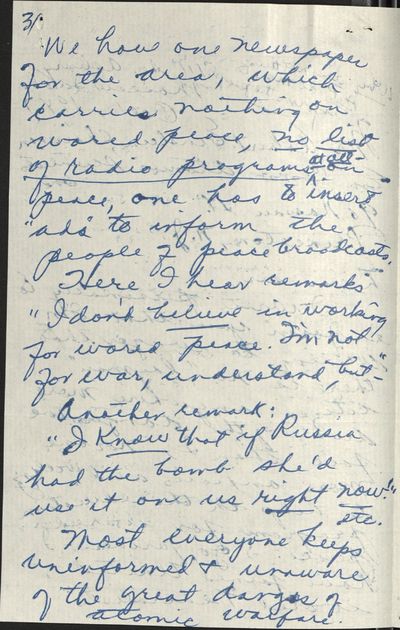 3/
We have one newspaper
for the area, which
carries nothing on
world peace, no list
of radio programs at all on
peace, one has to insert
"ads" to inform the
people of peace broadcasts.
Here I hear remarks
"I don't believe in working
for world peace. I'm not
for war, understand, but"-
Another remark:
"I know that if Russia
had the bomb she'd
use it on us right now!"
etc.
Most everyone keeps
uninformed & unaware
of the great dangers of
atomic warfare.